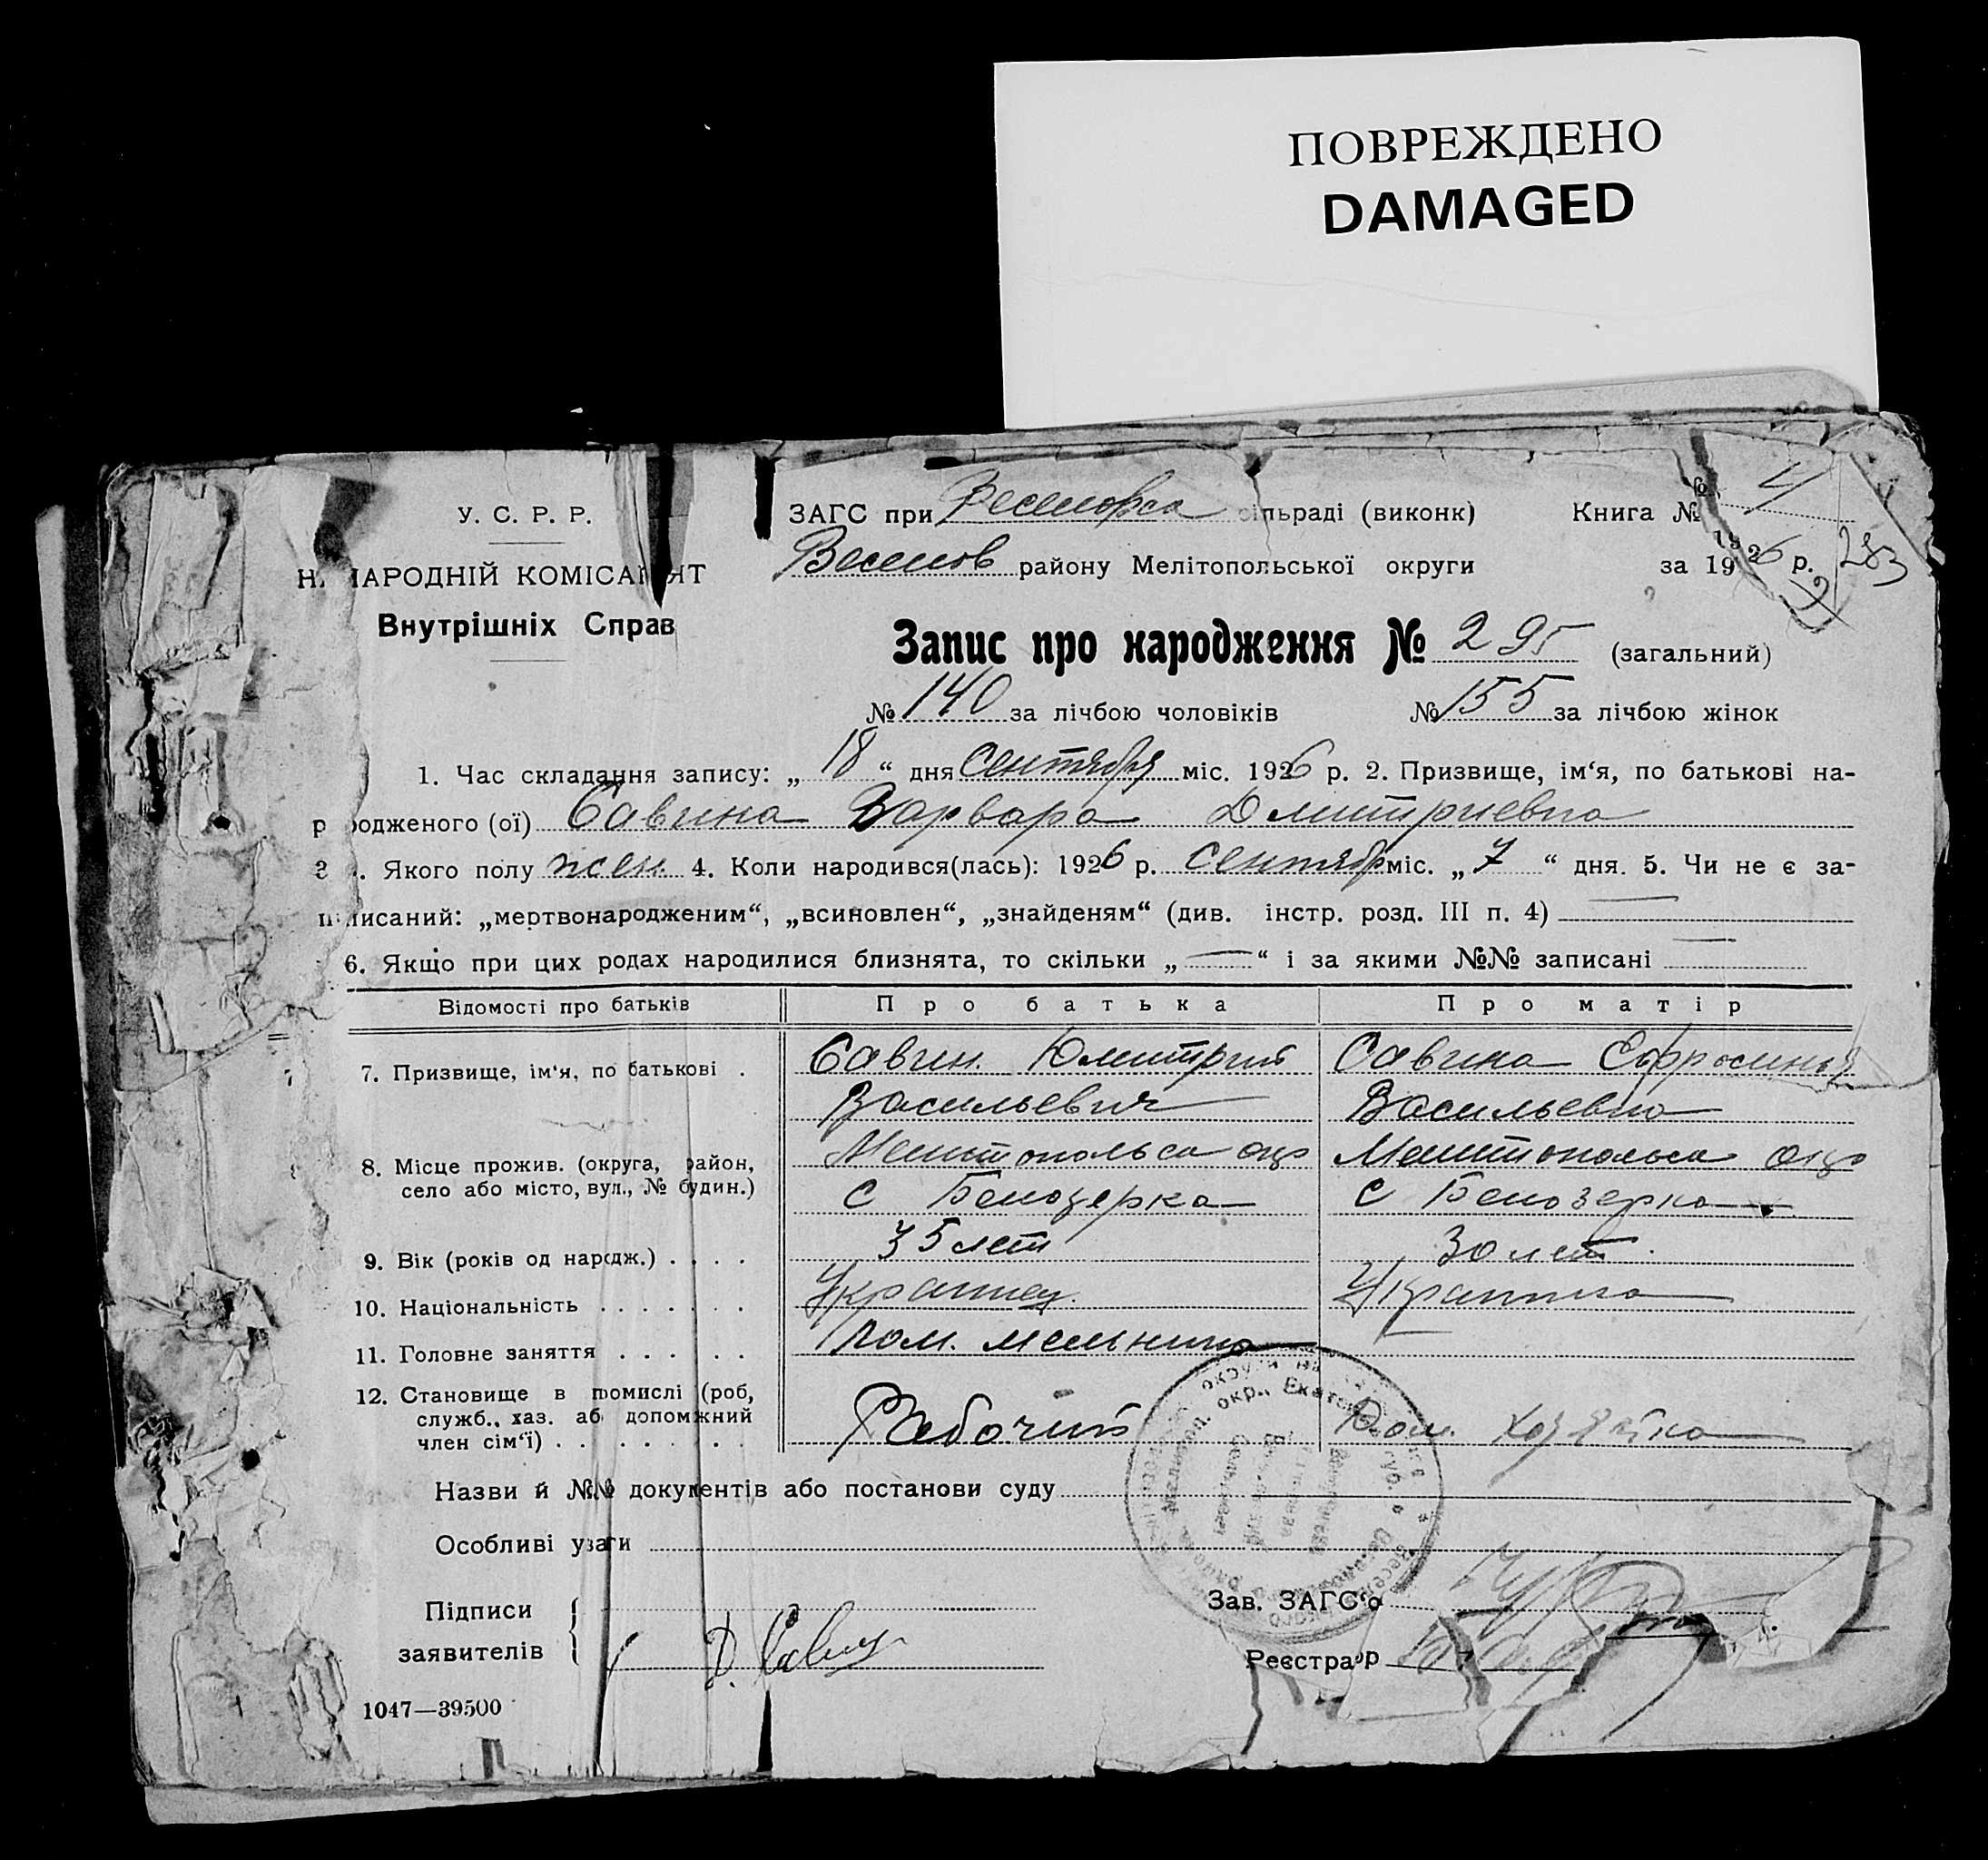 ПОВРЕЖДЕНО
DAMAGED
У. С. Р. Р.
НАРОДНІЙ КОМІСАРІЯТ
Внутрішніх Справ
ЗАГС при Веселовса сільраді (виконк) Книга № 4
Веселов району Мелітопольської округи за 1926 р. 283
Запис про народження № 295 (загальний)
№ 140 за лічбою чоловіків № 155 за лічбою жінок
1. Час складання запису: „18“ дня Сентября міс. 1926 р. 2. Призвище, ім‘я, по батькові на-
родженого (ої) Савина Варвара Дмитриевна
3. Якого полу жен. 4. Коли народився(лась): 1926 р. сентябр міс. „7“ дня. 5. Чи не є за-
писаний: „мертвонародженим“, „всиновлен“, „знайденям“ (див. інстр. розд. III п. 4) —
6. Якщо при цих родах народилися близнята, то скільки „—“ і за якими №№ записані —
Відомості про батьків Про батька Про матір
7. Призвище, ім‘я, по батькові . Савин. Дмитрий Савина Ефросинья
Васильевич Васильевна
8. Місце прожив. (округа, район, Мелитопольса окр Мелитопольса окр
село або місто, вул., № будин.) С Белозерка С Белозерка
9. Вік (років од народж.) . . . . 35 лет 30 лет.
10. Національність . . . . . . . Украинец. Украинка
11. Головне заняття . . . . . пом. мельника —
12. Становище в промислі (роб,
служб., хаз. або допоміжний Рабочий Дом. хозяйка
член сім‘ї) . . . . . . . .
Назви й №№ документів або постанови суду
Особливі уваги
Підписи Зав. ЗАГС‘о
заявителів Д. Савин Реєстратор
1047—39500